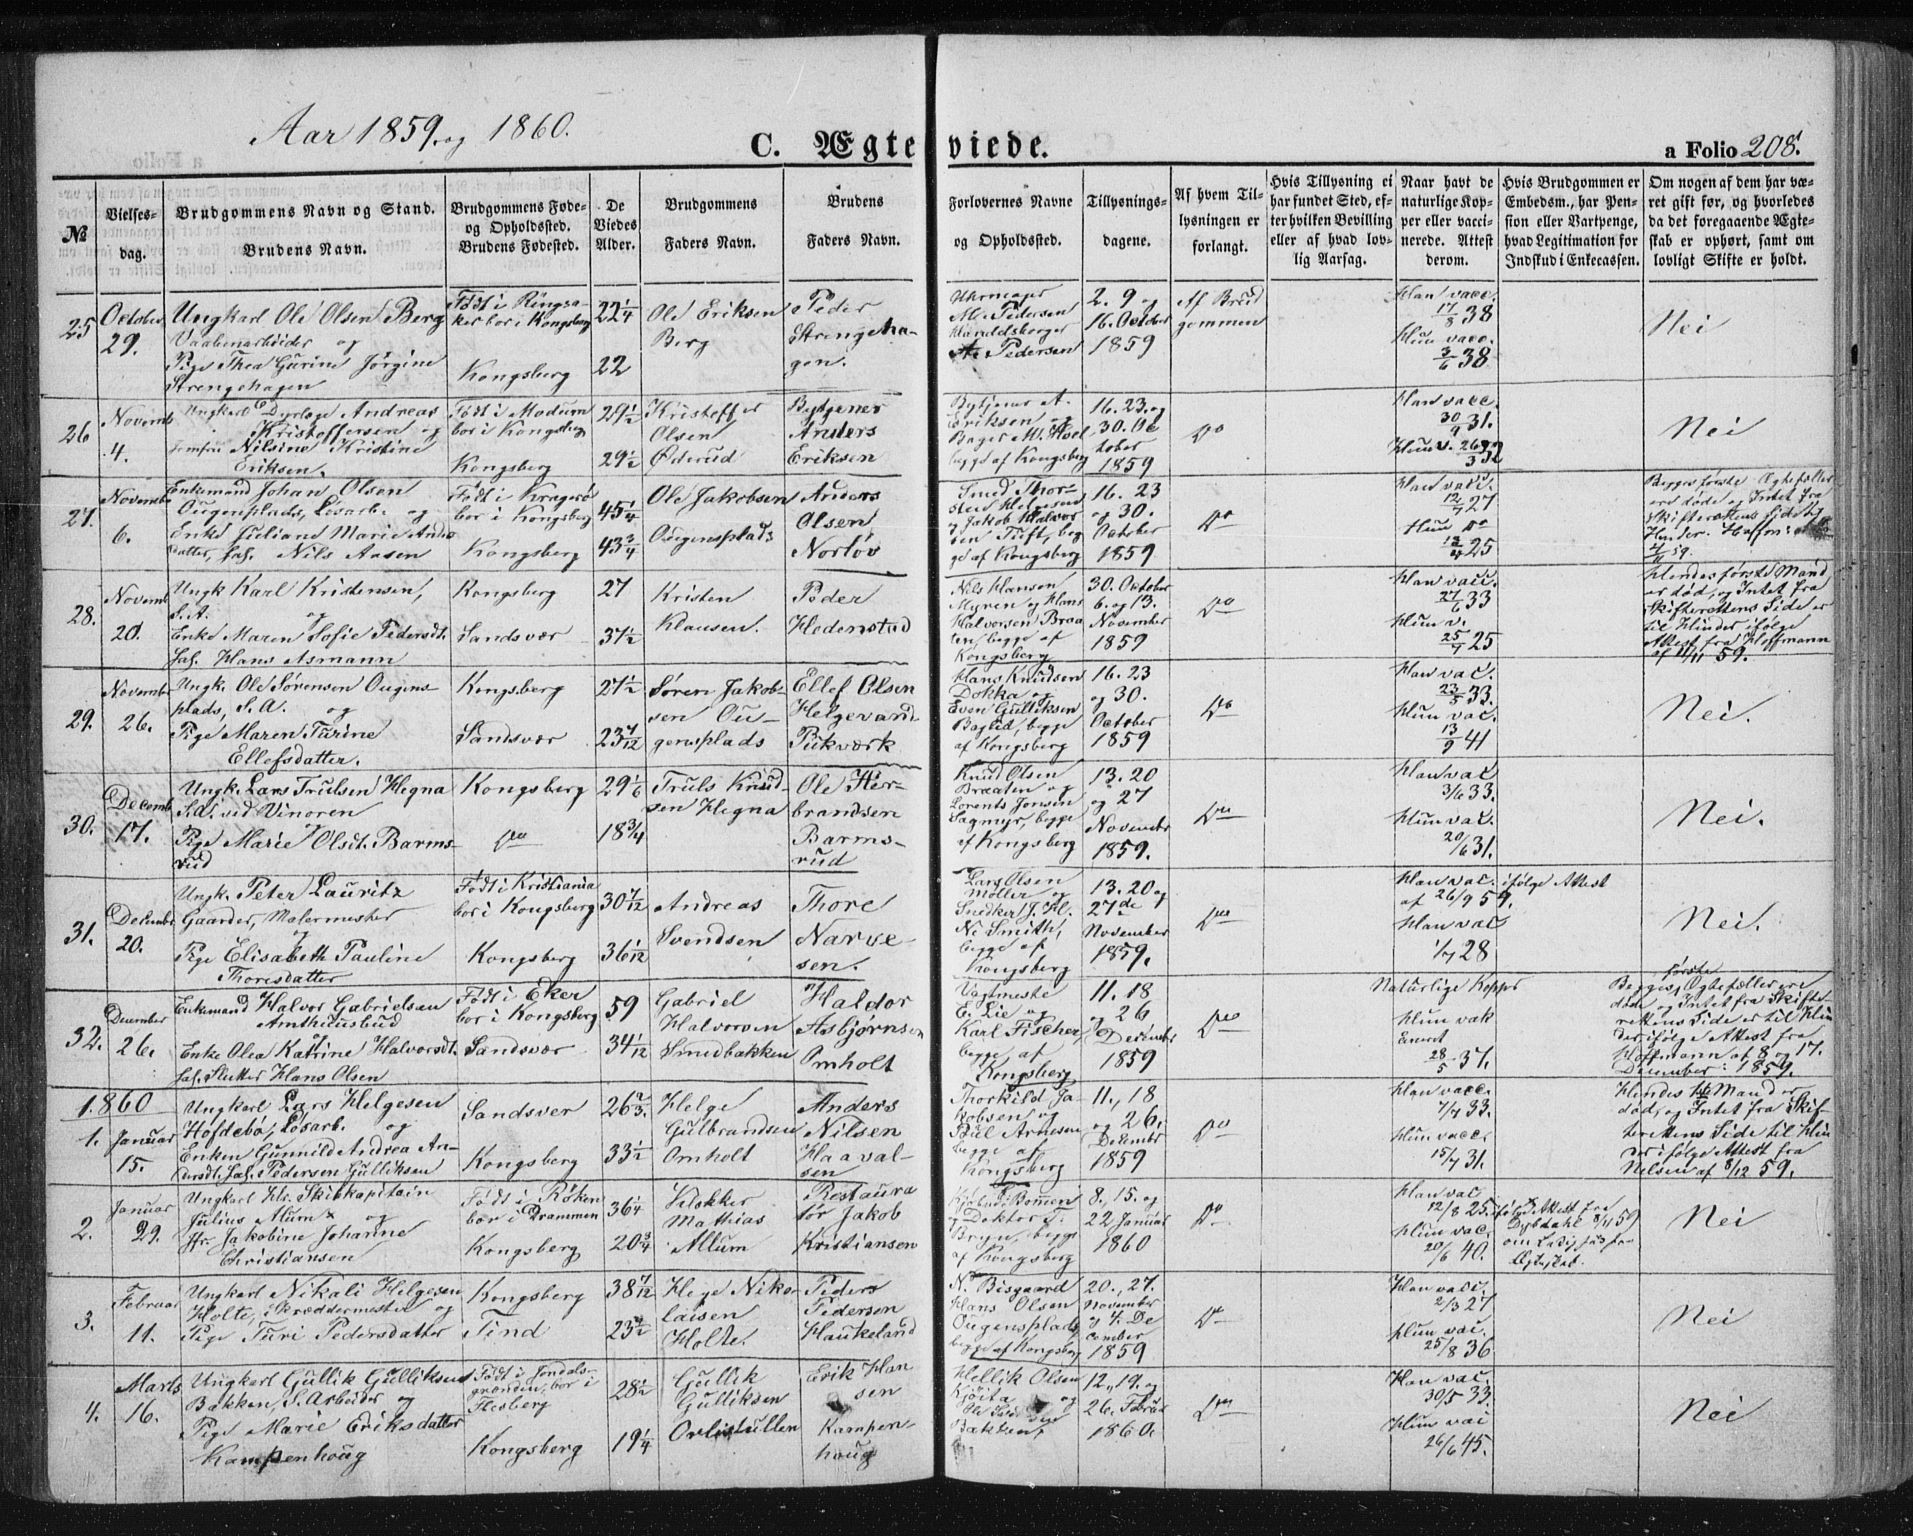 Aar 1859 og 1860.
C. Ægteviede.
a Folio 208.
№
Vielses-
dag.
Brudgommens Navn og Stand.
Brudens Navn.
Brudgommens Føde-
og Opholdssted.
Brudens Fødested.
De
Viedes
Alder.
Brudgommens
Faders Navn.
Brudens
Faders Navn.
Forlovernes Navne
og Opholdssted.
Tillysnings-
dagene.
Af hvem Til-
lysningen er
forlangt.
Hvis Tillysning ei
har fundet Sted, ef-
ter hvilken Bevilling
eller af hvad lov-
lig Aarsag.
Naar havt de
naturlige Kop-
per eller vacci-
nerede. Attest
derom.
Hvis Brudgommen er
Embedsm., har Pen-
sion eller Vartpenge,
hvad Legitimation for
Indskud i Enkecassen.
Om nogen af dem har væ-
ret gift før, og hvorledes
da det foregaaende Ægte-
skab er ophørt, samt om
lovligt Skifte er holdt.
25
October
29.
Ungkarl Ole Olsen Berg
Vaabenarbeider og
Pige Thea Gurine Jørgine
Strengehagen
Født i Ringsa-
ker bor i Kongsberg
Kongsberg
22 1/4
22
Ole Eriksen
Berg
Peder
Strengeha-
gen.
M. Pedersen
A. Pedersen
2. 9 og
16. October
1859
Af Brud
gommen
Han vacc.
17/8 38
Hun vacc.
3/6 38
Nei
26
Novemb
4.
Ungkarl Andreas
Kristoffersen og
Jomfru Nilsine Kristine
Eriksen.
Født i Modum
bor i Kongsberg
Kongsberg
29 1/2
29 1/2
Kristoffer
Olsen
Øderud
Bytjener
Anders
Eriksen
Bytjener A.
Eriksen og
Bager M. Hoel
begge af Kongsberg
16. 23. og
30. Oc
tober
1859
Do
Han vacc.
30/9 31.
Nei
27.
Novembe
6.
Enkemand Johan Olsen
Ougensplads, Losarb. og
Enke Juliane Marie Anders
datter, sal. Nils Aasen
Født i Kragerø
bor i Kongsberg
Kongsberg
45 1/4
43 3/4
Ole Jakobsen
Ougensplads
Anders
Olsen
Norløv
Smed Thor-
sten Helgesen
og Jakob Halvor
sen Tuft, beg
ge af Kongsberg
16. 23
og 30.
October
1859
Do
Han vacc.
12/7 27
Hun do
25
Begges første Ægtefæller
ere døde og Intet fra
Skifterettens Side til
28.
Novemb
20.
Ungk Karl Kristensen,
S.A. og
Enke Maren Sofie Pedersdt.
sal. Hans Asmann
Kongsberg
Sandsvær
27
37 1/2
Kristen
Klausen.
Peder
Hedenstad
Nils Hansen
Myren og Hans
Halvorsen Braa
ten, begge af
Kongsberg
30. October
6. og 13.
November
1859
Do
Han vacc.
27/6 33
Hun v.
25/7 25
Hendes første Mand
er død, og Intet fra
Skifterettens Side er
til Hinder ifølge
Attest fra Hoffmann
af 11/11 59.
29.
Novembr
26.
Ungk. Ole Sørensen Ougens-
plads, S.A. og
Pige Maren Turine
Ellefsdatter.
Kongsberg
Sandsvær
27 1/2
23 7/12
Søren Jakob-
sen Ou-
gensplads
Ellef Olsen
Helgevand
Pukværk
Hans Knudsen
Dokka og
Even Gulliksen
Baglid, begge
af Kongsberg
16. 23
og 30.
October
1859
Do
Han vac.
23/5 33.
Hun vac.
13/9 41
Nei.
30.
Decemb
17.
Ungk. Lars Trulsen Hegna
S.A. ved Vinoren
Pige Marie Olsdt. Barms-
rud
Kongsberg
Do
29 1/6
18 3/4
Truls Knud-
sen Hegna
Ole Her-
brandsen
Barms-
rud
Knud Olsen
Braaten og
Lorents Jonsen
Sagmyr, begge
af Kongsberg
13. 20
og 27
November
1859.
Do
Han vac
3/6 33.
Hun vac.
20/6 31.
Nei.
31.
December
20.
Ungk. Peter Lauritz
Gaarder, Malermester
og
Pige Elisabeth Pauline
Thoresdatter
Født i Kristiania
bor i Kongsberg
Kongsberg
30 7/12
36 1/12
Andreas
Svendsen
Thore
Narve-
sen.
Lars Olsen
Møller og
Snedker J. H.
Smith,
begge af
Kongsberg
13. 20 og
27de
November
1859.
Do
Han vac. ifølge Attest
af 26/9 59.
Han vac
1/7 28
Nei.
32.
December
26.
Enkemand Halvor Gabrielsen
og
Enke Olea Katrine Halvorsdt.
sal. Slutter Hans Olsen
Født i Eker
bor i Kongsberg
Sandsvær
59
34 1/12
Gabriel
Halvorsen
Smedbakken
Haldor
Asbjørnsen
Omholt
Vagtmester
E. Lie og
Karl Fischer,
begge af
Kongsberg
11. 18
og 26
December
1859
Do
Naturlige Kopper
Hun vak
28/5 37.
Begges første Ægtefæller ere
døde og Intet fra Skifte-
rettens Side er til Hin
der ifølge Attest fra
Hoffmann af 8 og 17.
December 1859.
1860
1.
Januar
15.
Ungkarl Lars Helgesen
Hofdebø, Losarb. og
Enken Gunnild Andrea An-
dersdt. sal. Pedersen Gulliksen
Sandsver
Kongsberg
26 2/3
33 1/2
Helge
Gulbrandsen
Omholt
Anders
Nilsen
Haaval-
sen
Thorkild Ja-
kobsen og
Bul Arnesen
begge af
Kongsberg
11., 18
og 26.
Decembr
1859
Do
Han vacc.
7/7 33.
Hun vacc.
15/7 31.
Hendes Mand er
død, og Intet fra Skif-
terettens Side til Hin
der ifølge Attest fra
Nielsen af 8/12 59.
2.
Januar
29.
Ungkarl Hr. Skibkapitain
Julius Alum og
Jfr. Jakobine Johanne
Christiansen
Født i Røken
bor i Drammen
Kongsberg
36 1/4
20 3/4
Klokker
Mathias
Allum
Restaura
tør Jakob
Kristiansen
og Doktor T.
Bryn, begge
af Kongsberg
8., 15. og
22 Januar
1860
Do
Han vac.
12/8 25.
Hun vac.
20/6 40.
ifølge Attest fra
Nei
3.
Februar
11.
Ungkarl Nikali Helgesen
Holte, Skræddermester og
Pige Turi Pedersdatter
Kongsberg
Tind
38 7/12
Helge Niko-
laisen
Holte.
Peder
Pedersen
Haukeland
N. Bisgaard
Hans Olsen
Ougensplads
begge af Kongsberg
20., 27.
November
og 4. De
cember
1859
Do
Han vacc.
2/3 27
Hun vac.
25/8 36
Nei
4.
Marts
16.
Ungkarl Gullik Gulliksen
Bakken, S. Arbeider og
Pige Marie Eriksdatter
Kampenhoug
Født i Jondals-
grænden, bor i
Flesberg
Kongsberg
28 1/2
19 1/4
Gullik
Gulliksen
Erik Han
sen
Kampen-
houg
Hellik Olsen
og
Bakken
12., 19. og
26. Febru
1860.
Do
Han vac.
30/5 33.
Hun vac
26/6 45.
Nei